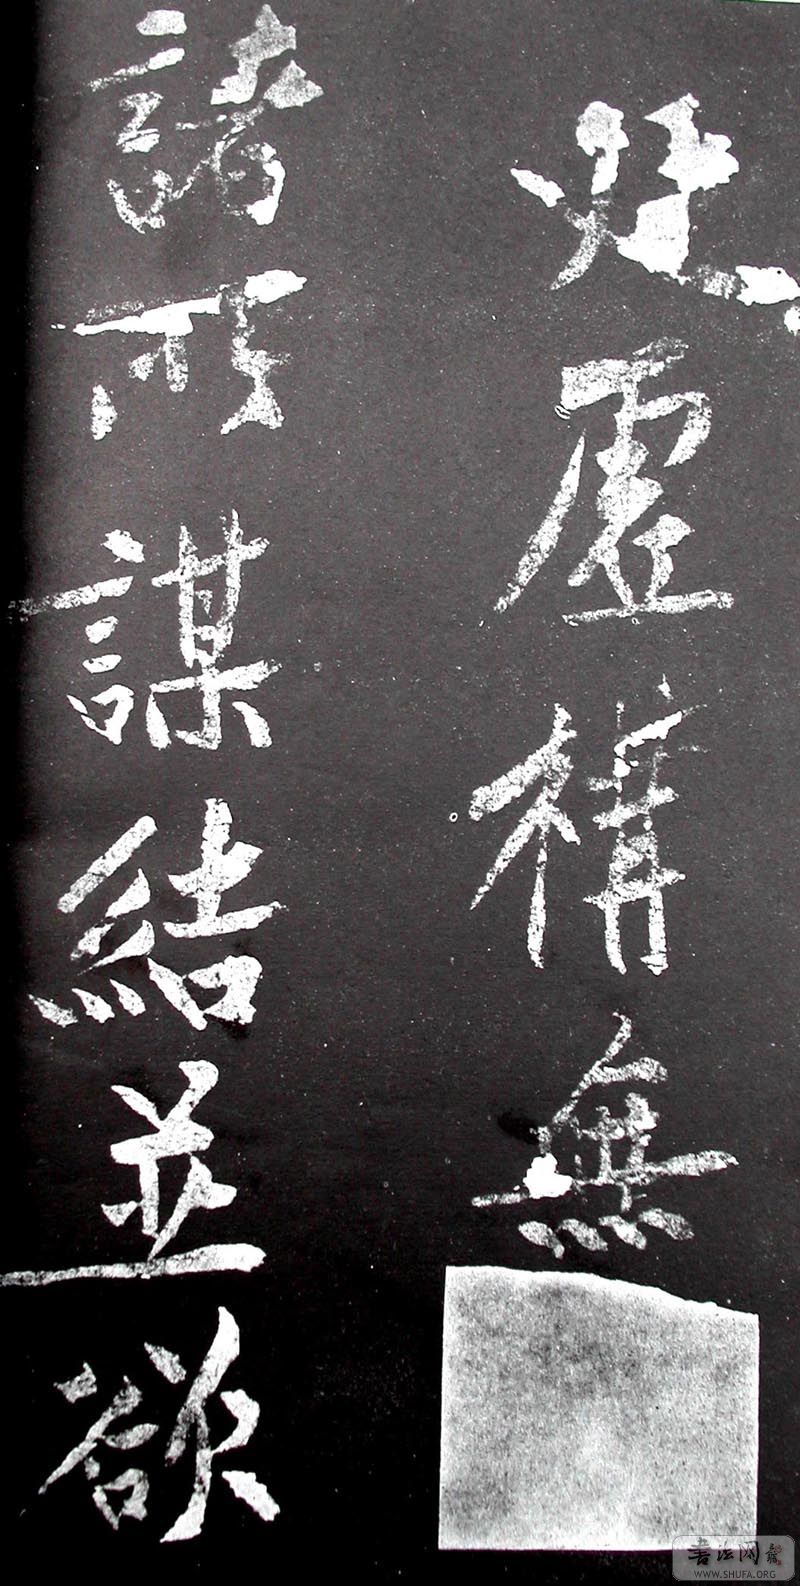 虛構無
諸所謀結並欲
書法网
WWW.SHUFA.ORG